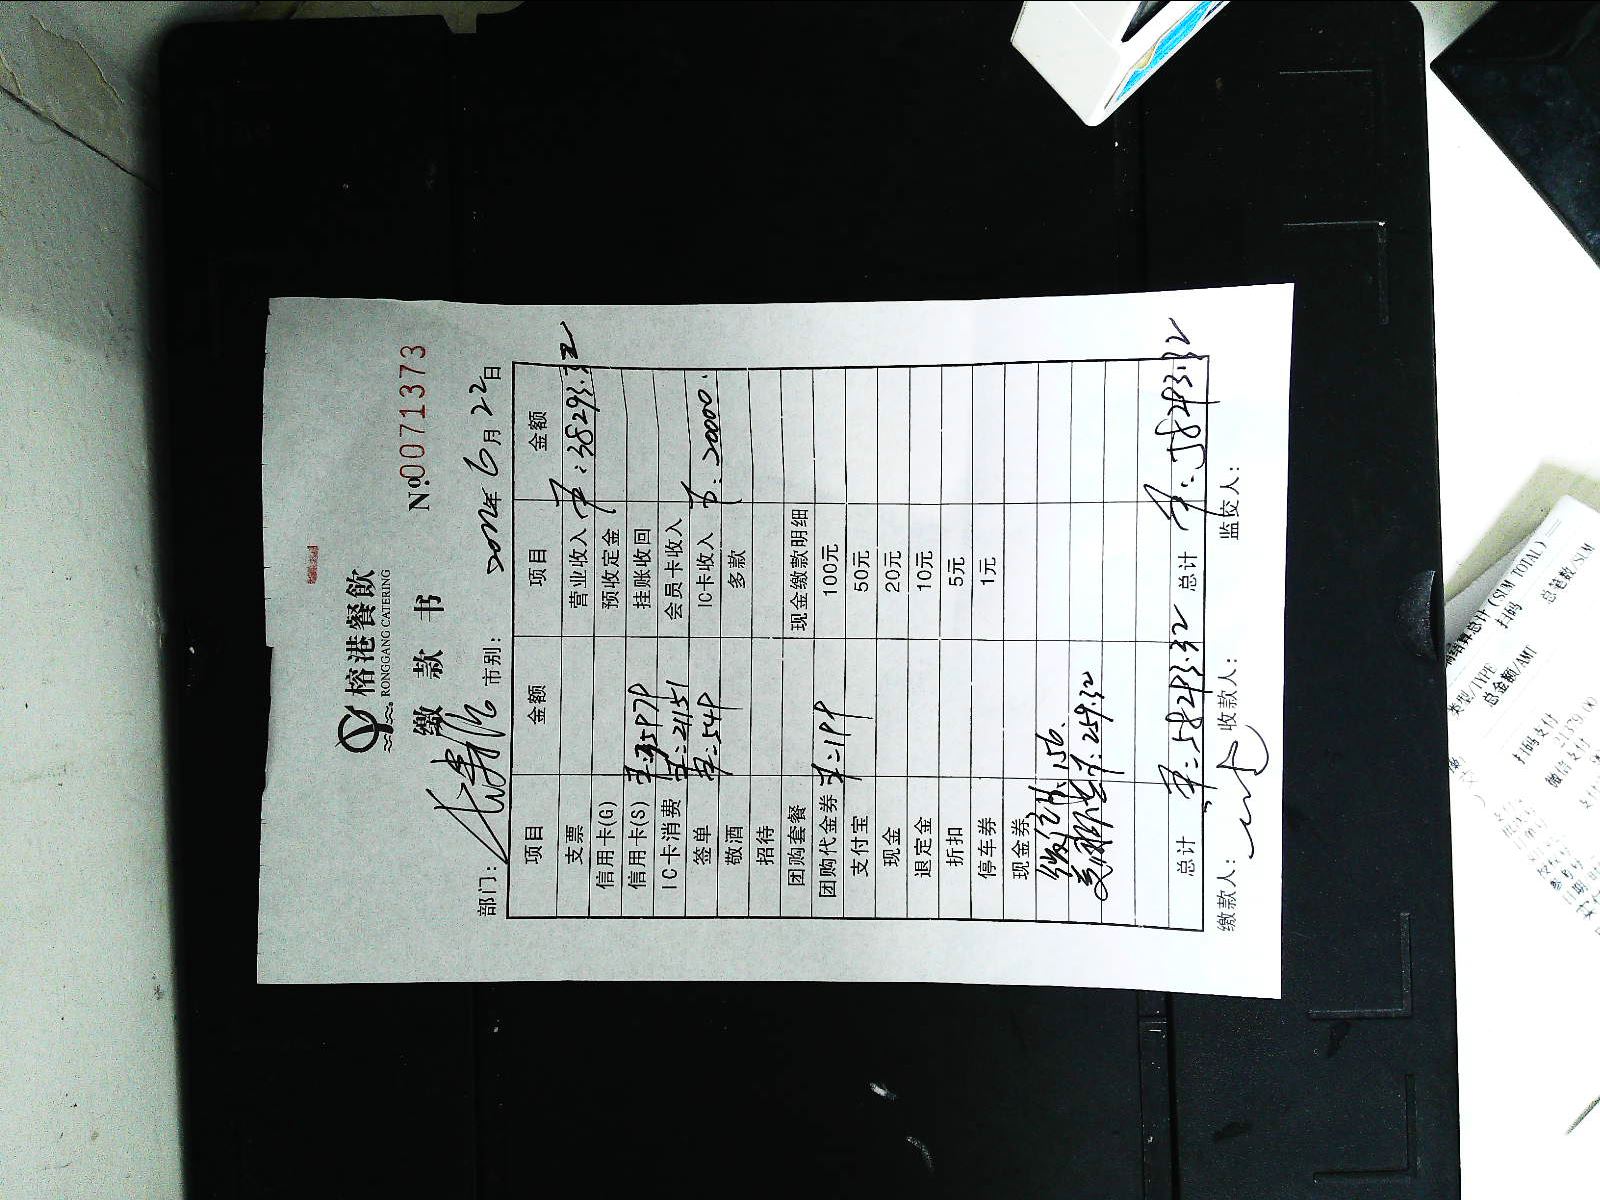 榕港餐飲
RONGGANG CATERING
缴 款 书
№0071373
部门: 市别: 2022年 6月 22日
项目 金额 项目 金额
支票 营业收入 ¥:38293.32
信用卡(G) 预收定金
信用卡(S) ¥:35979 挂账收回
IC卡消费 ¥:21151 会员卡收入
签单 ¥:549 IC卡收入 ¥:20000.
敬酒 多款
招待
团购套餐 现金缴款明细
团购代金券 ¥:199 100元
支付宝 50元
现金 20元
退定金 10元
折扣 5元
停车券 1元
现金券
156.
259.32
总计 ¥:58293.32 总计 ¥:58293.32
缴款人: 收款人: 监交人:
(SUM TOTAL)
类型/TYPE 扫码 总笔数/SUM
总金额/AMT
扫码支付
微信支付